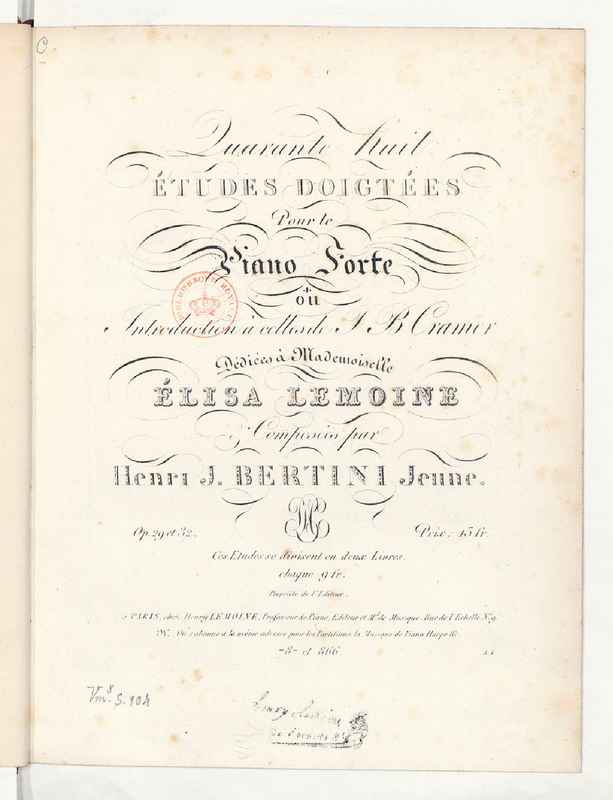 C.
Quarante huit
ÉTUDES DOIGTÉES
Pour le
Piano Forte
ou
Introduction à celles de J B Cramer
Dédiées à Mademoiselle
ÉLISA LEMOINE
& Composées par
Henri J. BERTINI Jeune.
Op. 29 et 32. Prix: 15 fr.
Ces Etudes se divisent en deux Livres.
chaque 9 fr.
Propriété de l'Editeur.
à PARIS, chez Henry LEMOINE, Professeur de Piano, Editeur et Md. de Musique, Rue de l'Echelle No. 9.
On s'abonne à la même adresse pour les Partitions, la Musique de Piano, Harpe &c.
et 866.
Vm8 S. 104
Henry Lemoine